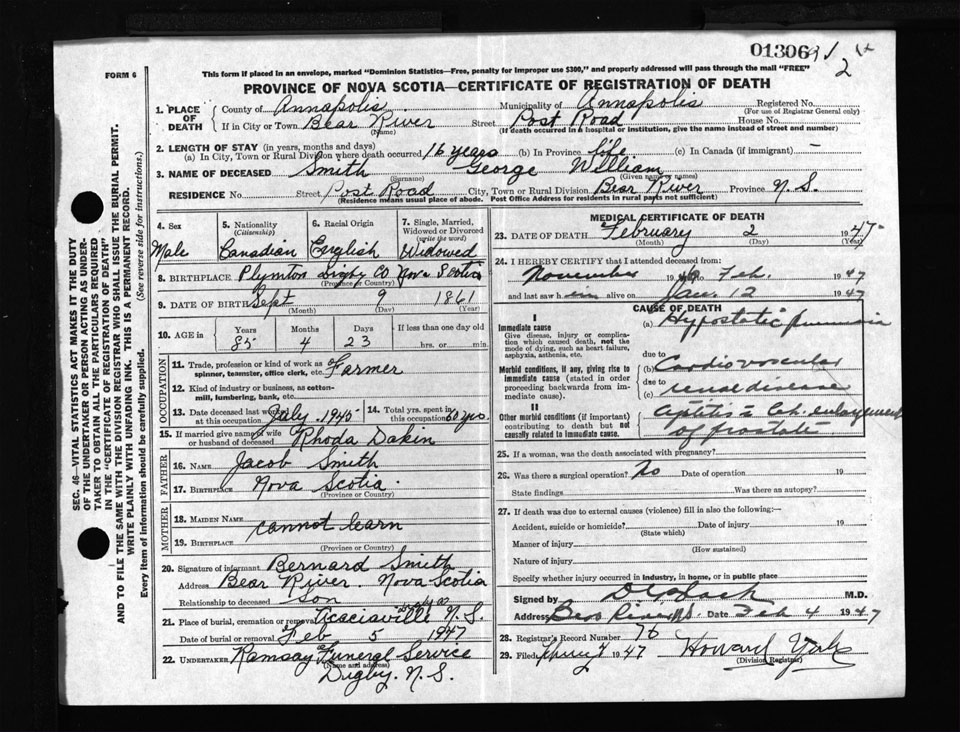 013061
2
FORM 6
This form if placed in an envelope, marked "Dominion Statistics—Free, penalty for improper use $300," and properly addressed will pass through the mail "FREE"
PROVINCE OF NOVA SCOTIA—CERTIFICATE OF REGISTRATION OF DEATH
1. PLACE OF DEATH County of Annapolis Municipality of Annapolis Registered No.
(For use of Registrar General only)
If in City or Town Bear River Street Post Road House No.
(Name) (If death occurred in a hospital or institution, give the name instead of street and number)
2. LENGTH OF STAY (in years, months and days)
(a) In City, Town or Rural Division where death occurred 16 years (b) In Province life (c) In Canada (if immigrant) —
3. NAME OF DECEASED Smith George William
(Surname) (Given name or names)
RESIDENCE No. Street Post Road City, Town or Rural Division Bear River Province N.S.
(Residence means usual place of abode. Post Office Address for residents in rural parts not sufficient)
4. Sex 5. Nationality (Citizenship) 6. Racial Origin 7. Single, Married, Widowed or Divorced (write the word)
Male Canadian English Widowed
8. BIRTHPLACE Plympton Digby Co Nova Scotia
(Province or Country)
9. DATE OF BIRTH Sept 9 1861
(Month) (Day) (Year)
10. AGE in Years Months Days If less than one day old
85 4 23 hrs. or min.
OCCUPATION
11. Trade, profession or kind of work as spinner, teamster, office clerk, etc. Farmer
12. Kind of industry or business, as cotton-mill, lumbering, bank, etc.
13. Date deceased last worked July 1945 14. Total yrs. spent in this occupation 60 yrs.
15. If married give name of wife or husband of deceased Rhoda Dakin
FATHER
16. NAME Jacob Smith
17. BIRTHPLACE Nova Scotia
(Province or Country)
MOTHER
18. MAIDEN NAME cannot learn
19. BIRTHPLACE
(Province or Country)
20. Signature of informant Bernard Smith
Address Bear River Nova Scotia
Relationship to deceased Son
21. Place of burial, cremation or removal Acaciaville N.S.
Date of burial or removal Feb 5 1947
22. UNDERTAKER Ramsay Funeral Service
(Name and address)
Digby. N.S.
MEDICAL CERTIFICATE OF DEATH
23. DATE OF DEATH February 2 1947
(Month) (Day) (Year)
24. I HEREBY CERTIFY that I attended deceased from:
November 1946 to Feb. 1947
and last saw him alive on Jan. 12 1947
CAUSE OF DEATH
I
Immediate cause
Give disease, injury or complication which caused death, not the mode of dying, such as heart failure, asphyxia, asthenia, etc.
(a) Hypostatic pneumonia
due to
Morbid conditions, if any, giving rise to immediate cause (stated in order proceeding backwards from immediate cause).
(b) Cardio vascular
due to
(c) renal disease
II
Other morbid conditions (if important) contributing to death but not causally related to immediate cause.
enlargement
of prostate
25. If a woman, was the death associated with pregnancy?
26. Was there a surgical operation? No Date of operation 19
State findings Was there an autopsy?
27. If death was due to external causes (violence) fill in also the following:—
Accident, suicide or homicide? Date of injury 19
(State which)
Manner of injury
(How sustained)
Nature of injury
Specify whether injury occurred in industry, in home, or in public place
Signed by M.D.
Address Bear River N.S. Date Feb 4 1947
28. Registrar's Record Number 76
29. Filed 1947 Howard
(Division Registrar)
SEC. 46—VITAL STATISTICS ACT MAKES IT THE DUTY
OF THE UNDERTAKER OR PERSON ACTING AS UNDER-
TAKER TO OBTAIN ALL THE PARTICULARS REQUIRED
IN THE "CERTIFICATE OF REGISTRATION OF DEATH"
AND TO FILE THE SAME WITH THE DIVISION REGISTRAR WHO SHALL ISSUE THE BURIAL PERMIT.
WRITE PLAINLY WITH UNFADING INK. THIS IS A PERMANENT RECORD.
Every item of information should be carefully supplied. (See reverse side for instructions.)